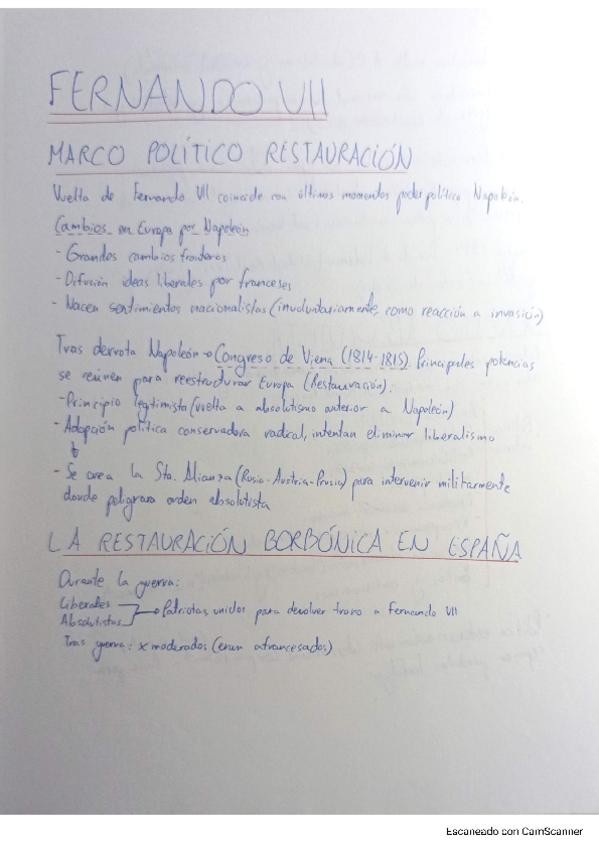 FERNANDO VII
MARCO POLÍTICO RESTAURACIÓN
Vuelta de Fernando VII coincide con últimos momentos poder político Napoleón.
Cambios en Europa por Napoleón
- Grandes cambios fronteros
- Difusión ideas liberales por franceses
- Nacen sentimientos nacionalistas (involuntariamente, como reacción a invasión)
Tras derrota Napoleón → Congreso de Viena (1814-1815). Principales potencias
se reúnen para reestructurar Europa (Restauración):
- Principio legitimista (vuelta a absolutismo anterior a Napoleón)
- Adopción política conservadora radical, intentan eliminar liberalismo
↓
- Se crea la Sta. Alianza (Rusia-Austria-Prusia) para intervenir militarmente
donde peligrara orden absolutista
LA RESTAURACIÓN BORBÓNICA EN ESPAÑA
Durante la guerra:
Liberales
Absolutistas → Patriotas, unidos para devolver trono a Fernando VII
Tras guerra: x moderados (eran afrancesados)
Escaneado con CamScanner